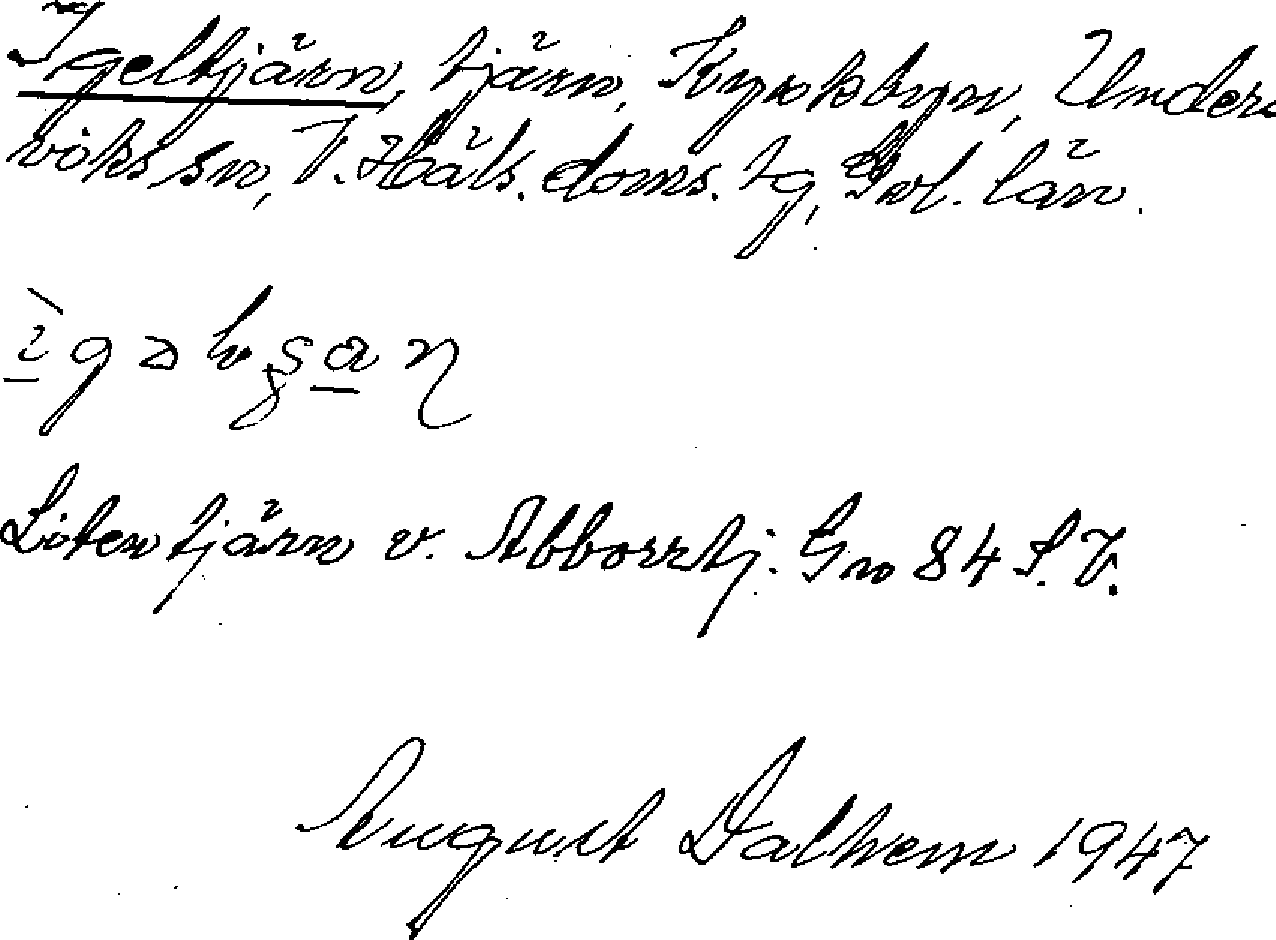 Igeltjärn, tjärn, Kyrkbyn, Under
viks sn, V. Häls. doms. tg, Gvl. län.
Liten tjärn v. Abborrtj. Gm 84 S.V.
August Dalhem 1947